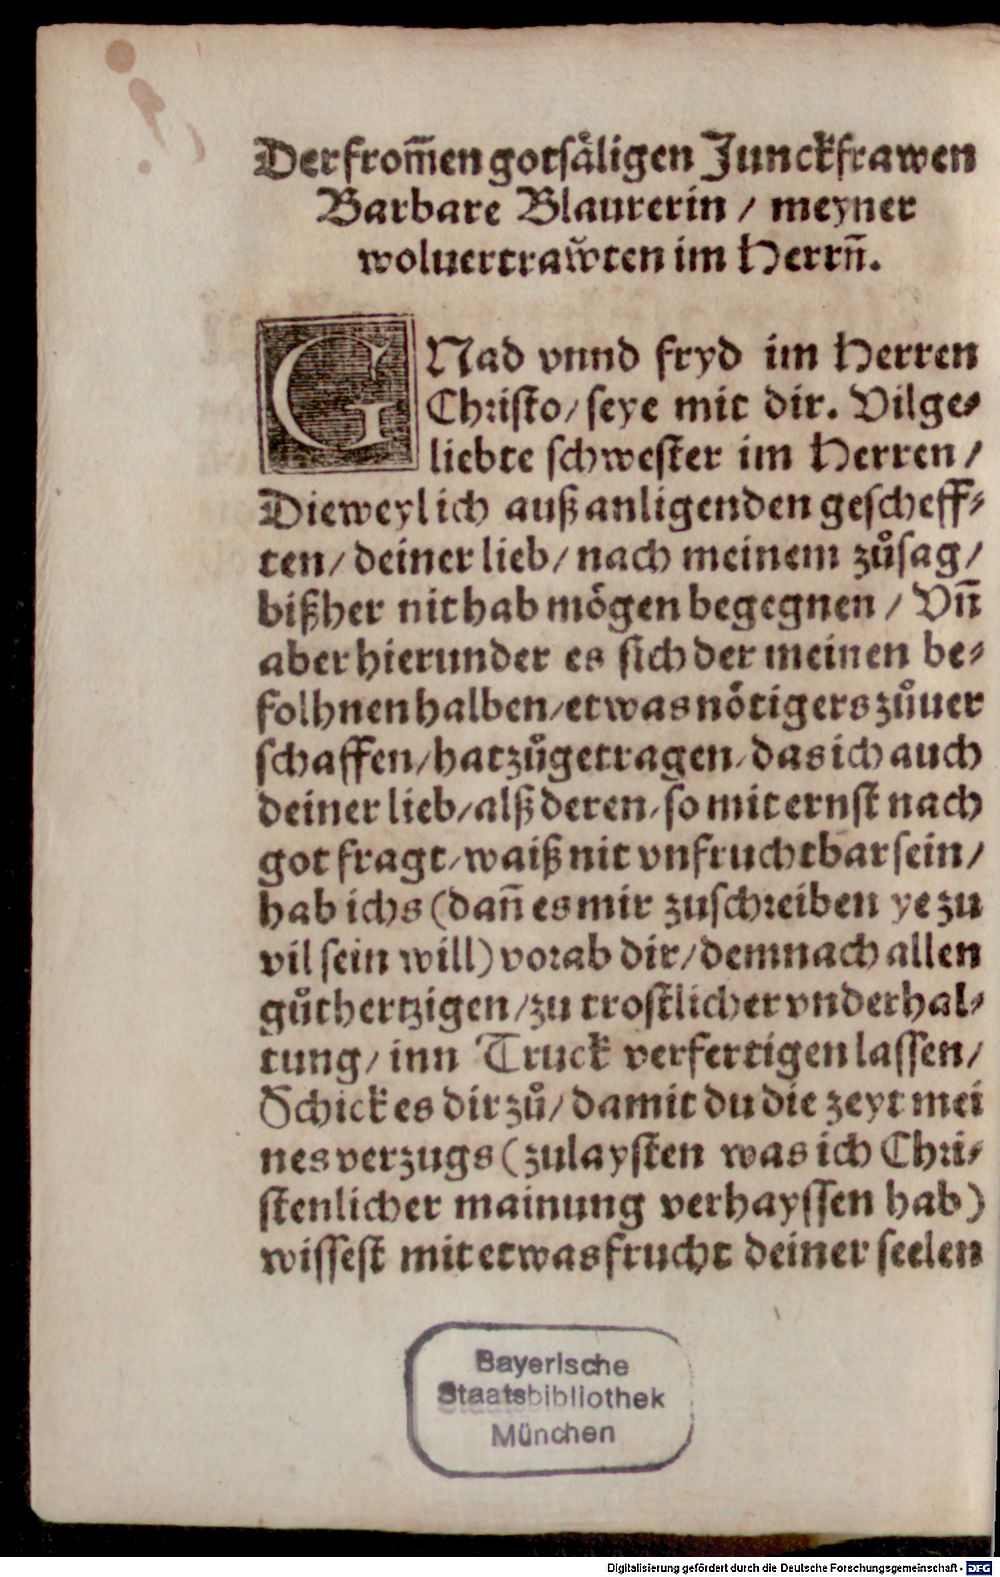 Der from̄en gotsåligen Junckfrawen
Barbare Blaurerin / meyner
woluertraw̃ten im Herrn̄.
GNad vnnd fryd im Herren
Christo / seye mit dir. Vilge⸗
liebte schwester im Herren /
Dieweyl ich auß anligenden gescheff⸗
ten / deiner lieb / nach meinem zůsag /
bißher nit hab mögen begegnen / Vn̄
aber hierunder es sich der meinen be⸗
folhnen halben / etwas nötigers zůuer
schaffen / hat zůgetragen / das ich auch
deiner lieb / alß deren / so mit ernst nach
got fragt / waiß nit vnfruchtbar sein /
hab ichs (dan̄ es mir zuschreiben ye zu
vil sein will) vorab dir / demnach allen
gůthertzigen / zu trostlicher vnderhal⸗
tung / inn Truck verfertigen lassen /
Schick es dir zů / damit du die zeyt mei
nes verzugs (zulaysten was ich Chri⸗
stenlicher mainung verhayssen hab)
wissest mit etwas frucht deiner seelen
Bayerische
Staatsbibliothek
München
Digitalisierung gefördert durch die Deutsche Forschungsgemeinschaft - DFG